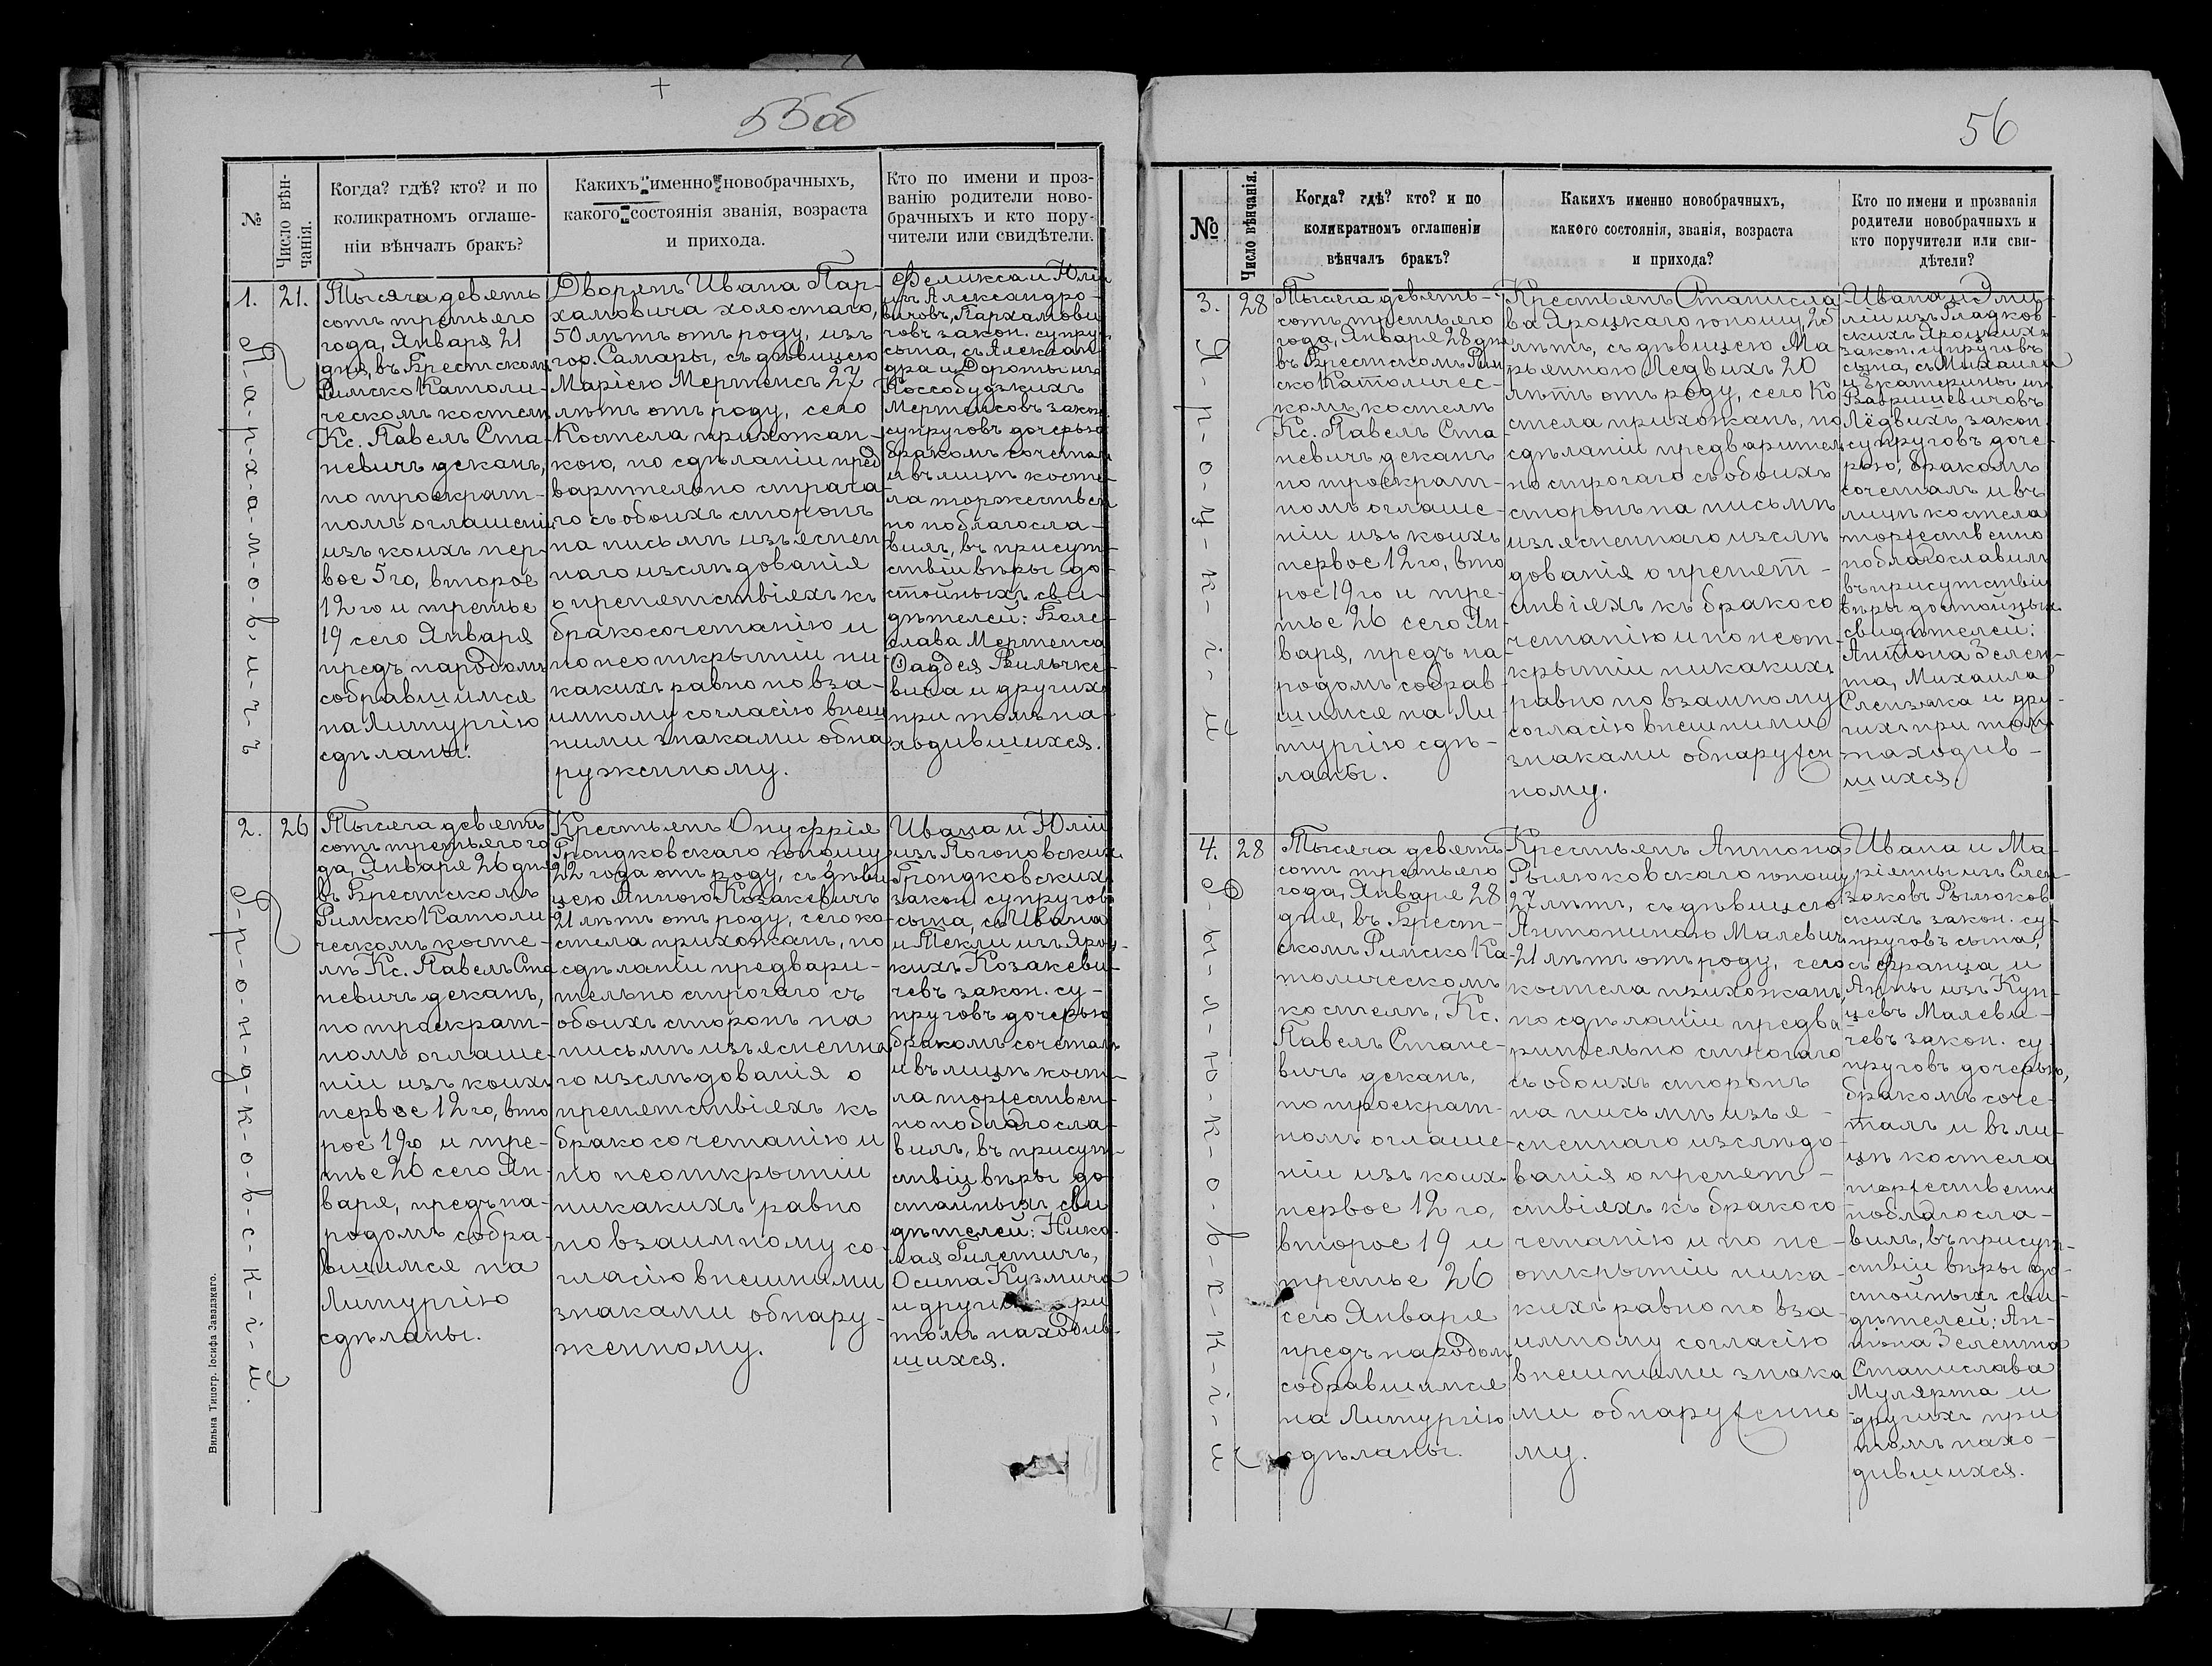 55об
№
Число вѣн-
чанія.
Когда? гдѣ? кто? и по
коликратномъ оглаше-
ніи вѣнчалъ бракъ?
Какихъ именно новобрачныхъ,
какого состоянія званія, возраста
и прихода.
Кто по имени и проз-
ванію родители ново-
брачныхъ и кто пору-
чители или свидѣтели.
1.
21.
П-а-р-х-а-м-о-в-и-ч-ъ
Тысяча девять
сотъ третьего
года, Января 21
дня, въ Брестскомъ
Римско Католи-
ческомъ костелѣ
Кс. Павелъ Ста-
невичъ деканъ,
по троекрат-
номъ оглашеніи
изъ коихъ пер-
вое 5го, второе
12го и третье
19 сего Января
предъ народомъ
собравшимся
на Литургію
сдѣланы.
Дворянъ Ивана Пар-
хамовича холостаго,
50 лѣтъ отъ роду, изъ
гор. Самары, съ дѣвицею
Марією Мертенсъ 27
лѣтъ отъ роду, сего
Костела прихожан-
кою, по сдѣланіи пред
варительно строга-
го съ обоихъ сторонъ
на письмѣ изъяснен
наго изслѣдованія
о препятствіяхъ къ
бракосочетанію и
по неоткрытіи ни
какихъ равно по вза-
имному согласію внеш
ними знаками обна
руженному.
Феликса и Юліи
изъ Александро-
вичовъ, Пархамови
човъ закон. супру-
сына, съ Алексан-
дра и Дороты изъ
Коссобудзкихъ
Мертенсовъ закон.
супруговъ дочерью
бракомъ сочеталъ
и въ лицѣ косте-
ла торжествен
но поблагосла-
вилъ, въ присут-
ствіи вѣры до-
стойныхъ сви-
дѣтелей: Боле-
слава Мертенса
Фаддея Вильчке-
вича и другихъ
при томъ на-
ходившихся.
2.
26
Г-р-о-н-д-к-о-в-с-к-і-й.
Тысяча девять
сотъ третьего го
да, Января 26 дня
въ Брестскомъ
Римско Католи-
ческомъ косте-
лѣ Кс. Павелъ Ста
невичъ деканъ,
по троекрат-
номъ оглаше-
ніи изъ коихъ
первое 12го, вто
рое 19го и тре-
тье 26 сего Ян-
варя, предъ на-
родомъ собра-
вшимся на
Литургію
сдѣланы.
Крестьянъ Онуфрія
Грондковскаго юношу
22 года отъ роду, съ дѣви
цею Анною Козакевичъ
21 лѣтъ отъ роду, сего ко-
стела прихожанъ, по
сдѣланіи предвари-
тельно строгаго съ
обоихъ сторонъ на
письмѣ изъясненна
го изслѣдованія о
препятствіяхъ къ
бракосочетанію и
по неоткрытіи
никакихъ равно
по взаимному со-
гласію внешними
знаками обнару-
женному.
Ивана и Юліи
изъ Погоновскихъ
Грондковскихъ
закон. супруговъ
сына, съ Ивана
и Текли изъ Яроц-
кихъ Козакеви-
чевъ закон. су-
пруговъ дочерью
бракомъ сочеталъ
и въ лицѣ косте-
ла торжествен-
но поблагосла-
вилъ, въ присут-
ствіи вѣры до-
стойныхъ сви
дѣтелей: Нико-
лая Гилетичъ,
Осипа Кузмича
и другихъ при
томъ находив-
шихся.
Вильна Типогр. Іосифа Завадзкаго.
56
№
Число вѣнчанія.
Когда? гдѣ? кто? и по
коликратномъ оглашеніи
вѣнчалъ бракъ?
Какихъ именно новобрачныхъ,
какого состоянія, званія, возраста
и прихода?
Кто по имени и прозванія
родители новобрачныхъ и
кто поручители или сви-
дѣтели?
3.
28
Я-р-о-ц-к-і-й
Тысяча девять-
сотъ третьего
года, Января 28 дня
въ Брестскомъ Рим
ско Католичес-
комъ костелѣ
Кс. Павелъ Ста
невичъ деканъ
по троекрат-
номъ оглаше-
ніи изъ коихъ
первое 12го, вто
рое 19го и тре-
тье 26 сего Ян-
варя, предъ на
родомъ собрав
шимся на Ли-
тургію сдѣ-
ланы.
Крестьянъ Станисла
ва Яроцкаго юношу, 25
лѣтъ, съ дѣвицею Ма
рьянною Ледвихъ 20
лѣтъ отъ роду, сего Ко
стела прихожанъ, по
сдѣланіи предварител
но строгаго съ обоихъ
сторонъ на письмѣ
изъясненнаго изслѣ
дованія о препят-
ствіяхъ къ бракосо
четанію и по неот-
крытіи никакихъ
равно по взаимному
согласію внешними
знаками обнаружен
ному.
Ивана и Эми-
ліи изъ Гладков-
скихъ Яроцкихъ
закон. супруговъ
сына, съ Михаила
и Екатерины изъ
Вавришевичовъ
Лёдвихъ закон.
супруговъ доче-
рью, бракомъ
сочеталъ и въ
лицѣ костела
торжественно
поблагославилъ
въ присутствіи
вѣры достойныхъ
свидѣтелей:
Антона Зелен-
та, Михаила
Слензака и дру-
гихъ при томъ
находив-
шихся.
4.
28
Р-ы-л-ю-к-о-в-с-к-і-й
Тысяча девять
сотъ третьего
года, Января 28
дня, въ Брест-
скомъ Римско Ка-
толическомъ
костелѣ, Кс.
Павелъ Стане-
вичъ деканъ,
по троекрат-
номъ оглаше-
ніи изъ коихъ
первое 12го,
второе 19 и
третье 26
сего Января
предъ народомъ
собравшимся
на Литургію
сдѣланы.
Крестьянъ Антона
Рылюковскаго юношу
27 лѣтъ, съ дѣвицею
Антониною Малевичъ
21 лѣтъ отъ роду, сего
костела прихожанъ,
по сдѣланіи предва
рительно строгаго
съ обоихъ сторонъ
на письмѣ изъя-
сненнаго изслѣдо-
ванія о препят-
ствіяхъ къ бракосо
четанію и по не-
открытіи ника-
кихъ равно по вза-
имному согласію
внешними знака
ми обнаруженно
му.
Ивана и Ма-
ріанны изъ Слен-
заковъ Рылюков
скихъ закон. су-
пруговъ сына,
съ Франца и
Анны изъ Куп-
цевъ Малеви-
чевъ закон. су-
пруговъ дочерью,
бракомъ соче-
талъ и въ ли-
цѣ костела
торжественно
поблагосла-
вилъ, въ присут-
ствіи вѣры до-
стойныхъ сви-
дѣтелей: Ан-
тона Зелента
Станислава
Мулярта и
другихъ при
томъ нахо-
дившихся.